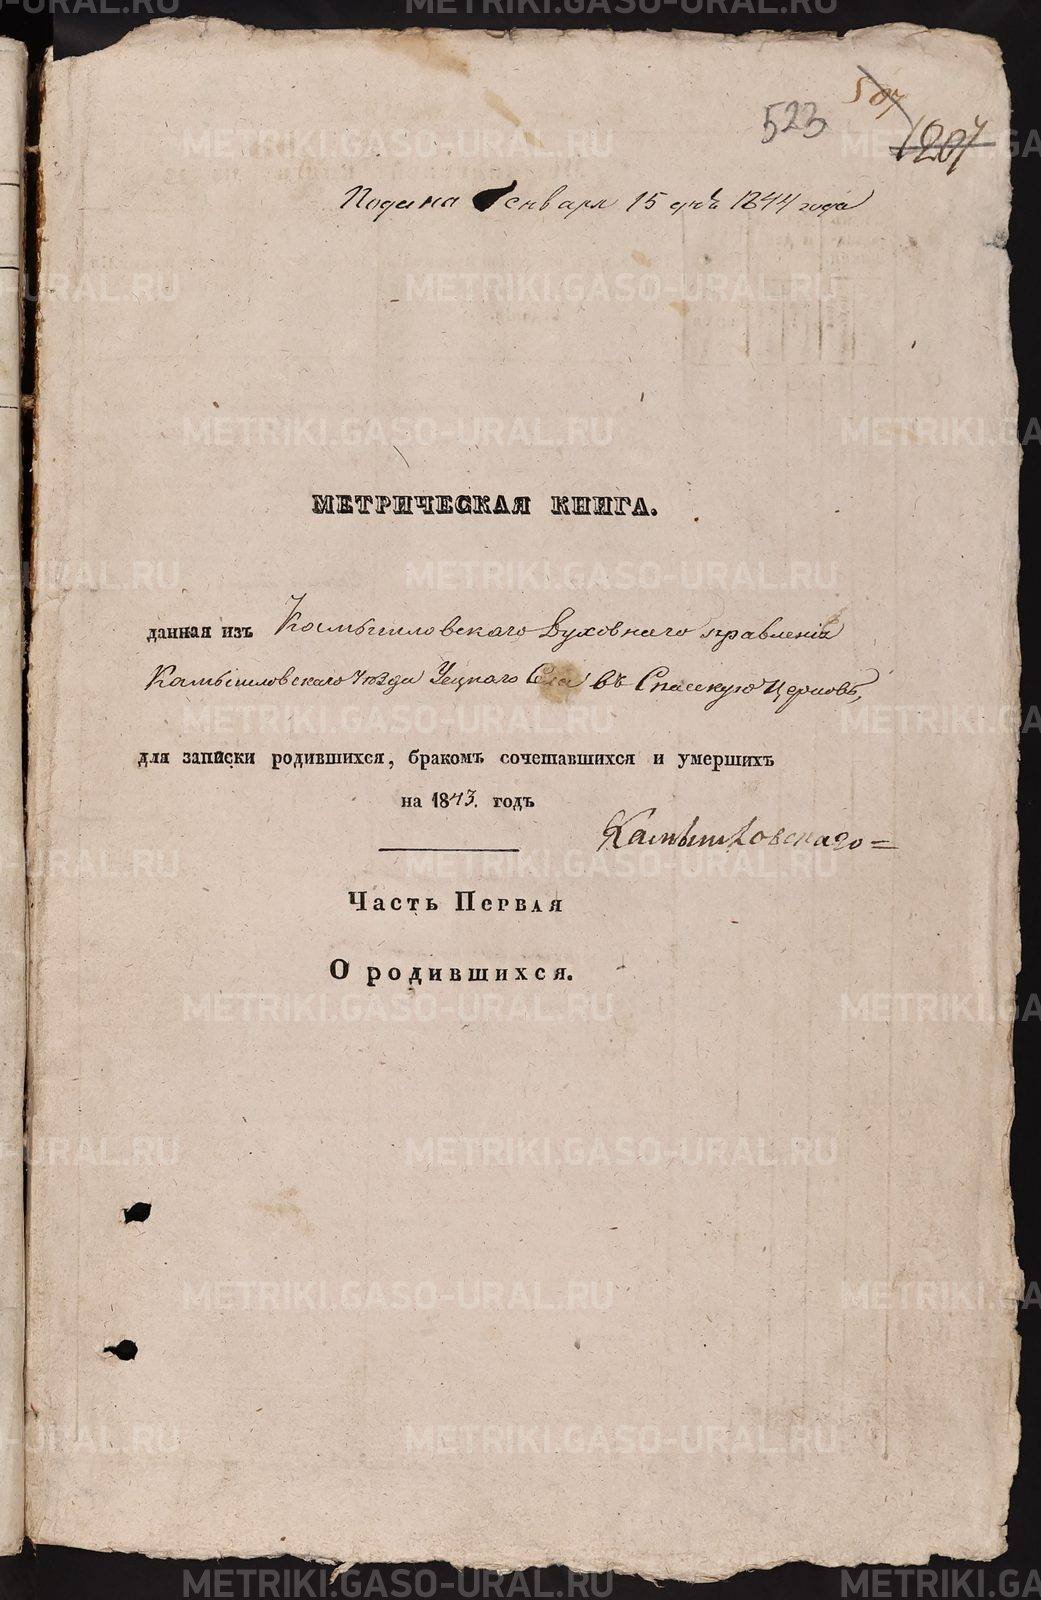 523
507
1207
Подана Генваря 15 дня 1844 года
МЕТРИЧЕСКАЯ КНИГА.
данная изъ Камышловскаго Духовнаго правленія
Камышловскаго Уѣзда Уецкаго Села въ Спаскую Церковь,
для записки родившихся, бракомъ сочетавшихся и умершихъ
на 1843. годъ
Камышловскаго =
Часть Первая
О родившихся.
METRIKI.GASO-URAL.RU